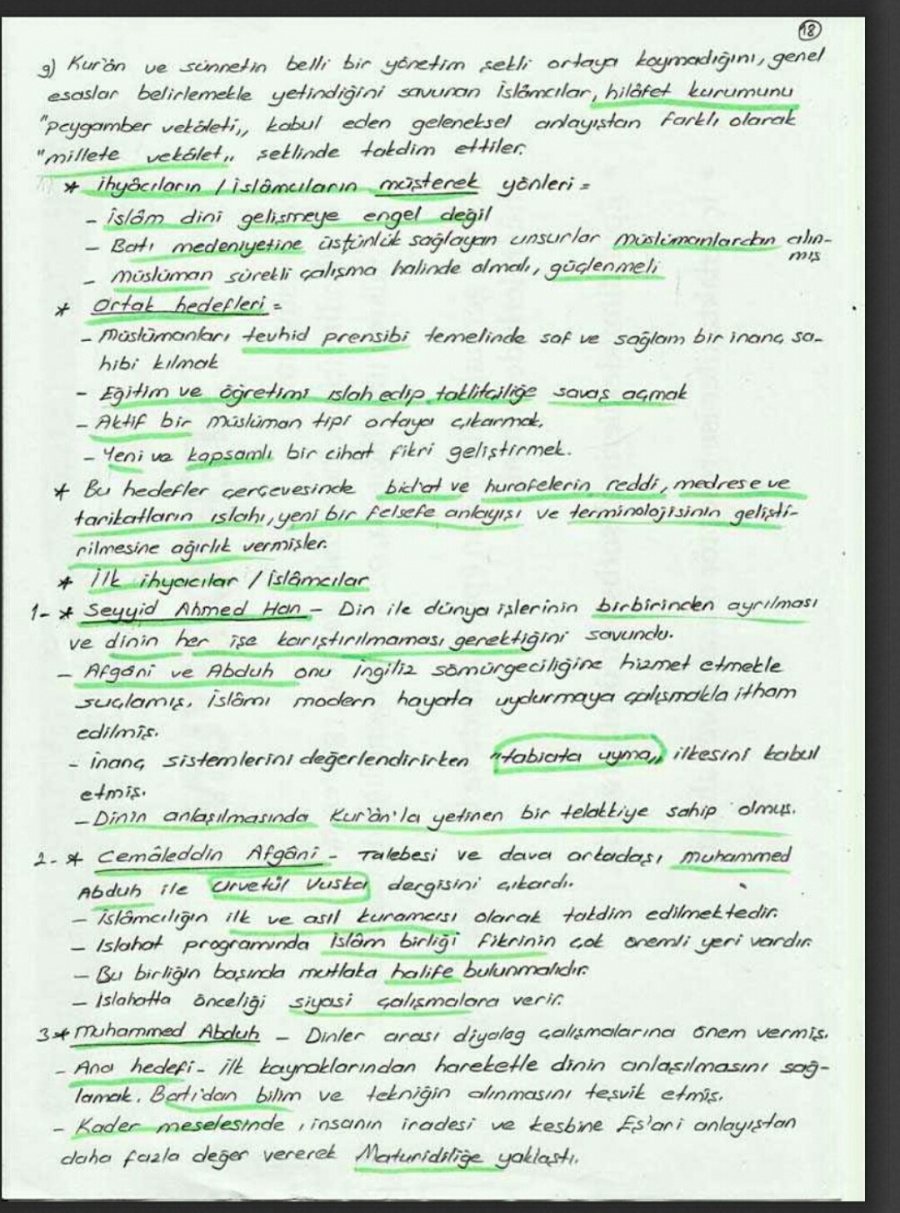 18
g) Kur'ân ve sünnetin belli bir yönetim şekli ortaya koymadığını, genel
esaslar belirlemekle yetindiğini savunan İslâmcılar, hilâfet kurumunu
"peygamber vekâleti,, kabul eden geleneksel anlayıştan farklı olarak
"millete vekâlet,, şeklinde takdim ettiler.
* İhyâcıların / İslâmcıların müşterek yönleri =
- İslâm dini gelişmeye engel değil
- Batı medeniyetine üstünlük sağlayan unsurlar müslümanlardan alın-
mış
- müslüman sürekli çalışma halinde olmalı, güçlenmeli
* Ortak hedefleri =
- Müslümanları tevhid prensibi temelinde saf ve sağlam bir inanç sa-
hibi kılmak
- Eğitim ve öğretimi ıslah edip taklitçiliğe savaş açmak
- Aktif bir müslüman tipi ortaya çıkarmak.
- Yeni ve kapsamlı bir cihat fikri geliştirmek.
* Bu hedefler çerçevesinde bid'at ve hurafelerin reddi, medrese ve
tarikatların ıslahı, yeni bir felsefe anlayışı ve terminolojisinin gelişti-
rilmesine ağırlık vermişler.
* İlk ihyacılar / İslâmcılar
1- * Seyyid Ahmed Han - Din ile dünya işlerinin birbirinden ayrılması
ve dinin her işe karıştırılmaması gerektiğini savundu.
- Afgâni ve Abduh onu İngiliz sömürgeciliğine hizmet etmekle
suçlamış, İslâmı modern hayata uydurmaya çalışmakla itham
edilmiş.
- İnanç sistemlerini değerlendirirken "tabiata uyma,, ilkesini kabul
etmiş.
- Dinin anlaşılmasında Kur'ân'la yetinen bir telakkiye sahip olmuş.
2- * Cemâleddin Afgâni - Talebesi ve dava arkadaşı Muhammed
Abduh ile Urvetül Vuska dergisini çıkardı.
- İslâmcılığın ilk ve asıl kuramcısı olarak takdim edilmektedir.
- Islahat programında İslâm birliği fikrinin çok önemli yeri vardır.
- Bu birliğin başında mutlaka halife bulunmalıdır.
- Islahatta önceliği siyasi çalışmalara verir.
3* Muhammed Abduh - Dinler arası diyalog çalışmalarına önem vermiş.
- Ana hedefi - ilk kaynaklarından hareketle dinin anlaşılmasını sağ-
lamak. Batı'dan bilim ve tekniğin alınmasını teşvik etmiş.
- Kader meselesinde, insanın iradesi ve kesbine Eş'ari anlayıştan
daha fazla değer vererek Maturidiliğe yaklaştı.